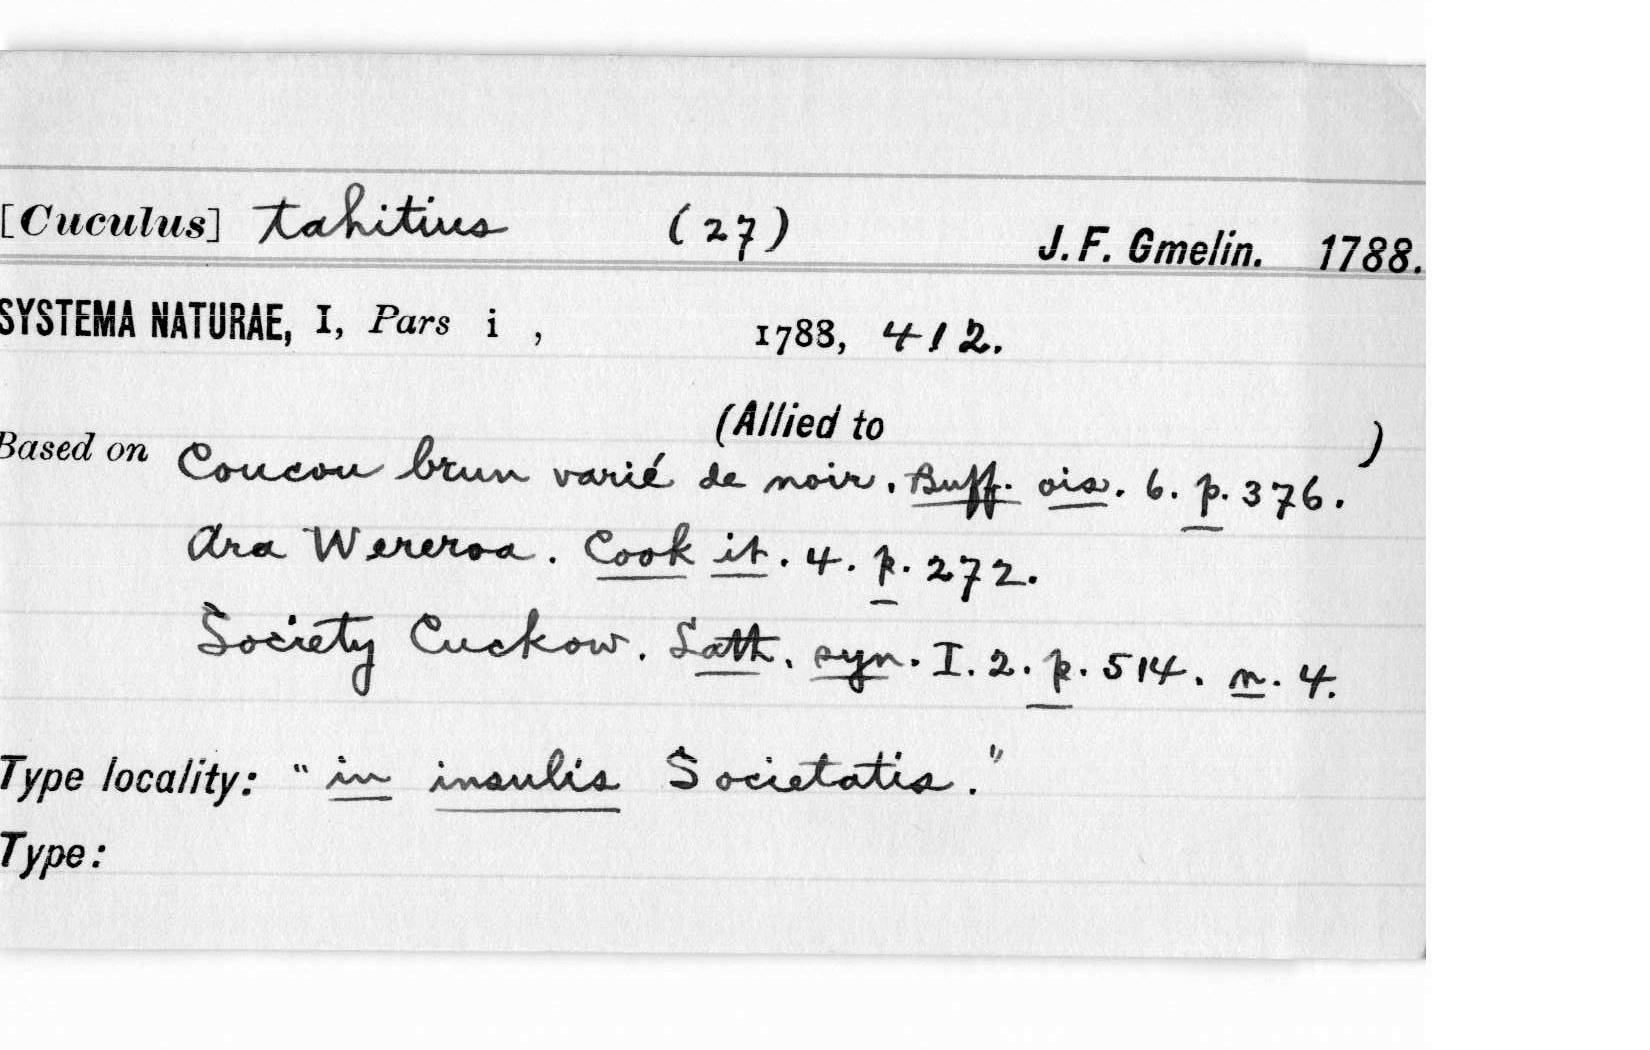 [Cuculus] tahitius (27) J. F. Gmelin. 1788.
SYSTEMA NATURAE, I, Pars i , 1788, 412.
(Allied to )
Based on Coucou brun varié de noir. Buff. ois. 6. p. 376.
Ara Wereroa. Cook it. 4. p. 272.
Society Cuckow. Lath. syn. I. 2. p. 514. n. 4.
Type locality: "in insulis Societatis."
Type: